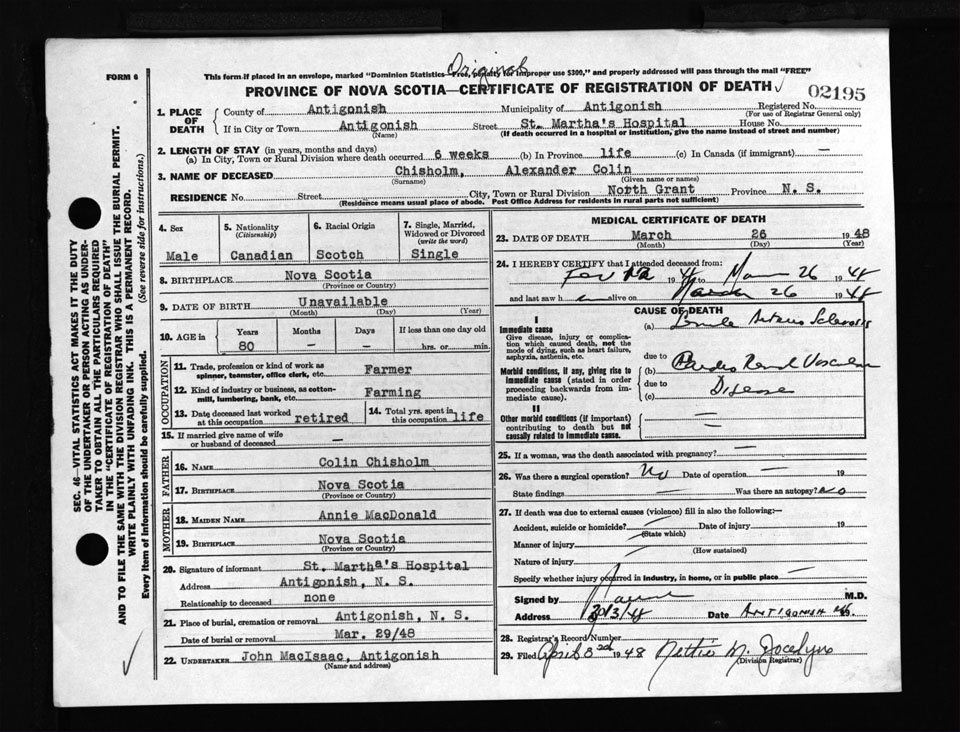 Original
FORM 6
This form if placed in an envelope, marked "Dominion Statistics—Free, penalty for improper use $300," and properly addressed will pass through the mail "FREE"
PROVINCE OF NOVA SCOTIA—CERTIFICATE OF REGISTRATION OF DEATH
02195
1. PLACE OF DEATH
County of Antigonish Municipality of Antigonish Registered No.
(For use of Registrar General only)
If in City or Town Antigonish Street St. Martha's Hospital House No.
(Name) (If death occurred in a hospital or institution, give the name instead of street and number)
2. LENGTH OF STAY (in years, months and days)
(a) In City, Town or Rural Division where death occurred 6 weeks (b) In Province life (c) In Canada (if immigrant) —
3. NAME OF DECEASED Chisholm, Alexander Colin
(Surname) (Given name or names)
RESIDENCE No. Street City, Town or Rural Division North Grant Province N. S.
(Residence means usual place of abode. Post Office Address for residents in rural parts not sufficient)
4. Sex
Male
5. Nationality
(Citizenship)
Canadian
6. Racial Origin
Scotch
7. Single, Married, Widowed or Divorced
(write the word)
Single
8. BIRTHPLACE Nova Scotia
(Province or Country)
9. DATE OF BIRTH Unavailable
(Month) (Day) (Year)
10. AGE in Years Months Days If less than one day old
80 — — hrs. or min.
OCCUPATION
11. Trade, profession or kind of work as Farmer
spinner, teamster, office clerk, etc.
12. Kind of industry or business, as cotton- Farming
mill, lumbering, bank, etc.
13. Date deceased last worked at this occupation retired
14. Total yrs. spent in this occupation life
15. If married give name of wife or husband of deceased —
FATHER
16. NAME Colin Chisholm
17. BIRTHPLACE Nova Scotia
(Province or Country)
MOTHER
18. MAIDEN NAME Annie MacDonald
19. BIRTHPLACE Nova Scotia
(Province or Country)
20. Signature of informant St. Martha's Hospital
Address Antigonish, N. S.
Relationship to deceased none
21. Place of burial, cremation or removal Antigonish, N. S.
Date of burial or removal Mar. 29/48
22. UNDERTAKER John MacIsaac, Antigonish
(Name and address)
MEDICAL CERTIFICATE OF DEATH
23. DATE OF DEATH March 26 1948
(Month) (Day) (Year)
24. I HEREBY CERTIFY that I attended deceased from:
1948 to Mar 26 1948
and last saw h alive on March 26 1948
CAUSE OF DEATH
I
Immediate cause
Give disease, injury or complication which caused death, not the mode of dying, such as heart failure, asphyxia, asthenia, etc.
(a) Sclerosis
due to
Morbid conditions, if any, giving rise to immediate cause (stated in order proceeding backwards from immediate cause).
(b) Cardio Renal Vascular
due to Disease
(c)
II
Other morbid conditions (if important) contributing to death but not causally related to immediate cause.
25. If a woman, was the death associated with pregnancy? —
26. Was there a surgical operation? No Date of operation — 19
State findings — Was there an autopsy? No
27. If death was due to external causes (violence) fill in also the following:—
Accident, suicide or homicide? Date of injury 19
(State which)
Manner of injury
(How sustained)
Nature of injury
Specify whether injury occurred in industry, in home, or in public place —
Signed by M.D.
Address 30/3/48 Date ANTIGONISH
28. Registrar's Record Number
29. Filed April 3rd 1948 Nettie M. Jocelyn
(Division Registrar)
SEC. 46—VITAL STATISTICS ACT MAKES IT THE DUTY
OF THE UNDERTAKER OR PERSON ACTING AS UNDER-
TAKER TO OBTAIN ALL THE PARTICULARS REQUIRED
IN THE "CERTIFICATE OF REGISTRATION OF DEATH"
AND TO FILE THE SAME WITH THE DIVISION REGISTRAR WHO SHALL ISSUE THE BURIAL PERMIT.
WRITE PLAINLY WITH UNFADING INK. THIS IS A PERMANENT RECORD.
Every item of Information should be carefully supplied. (See reverse side for instructions.)